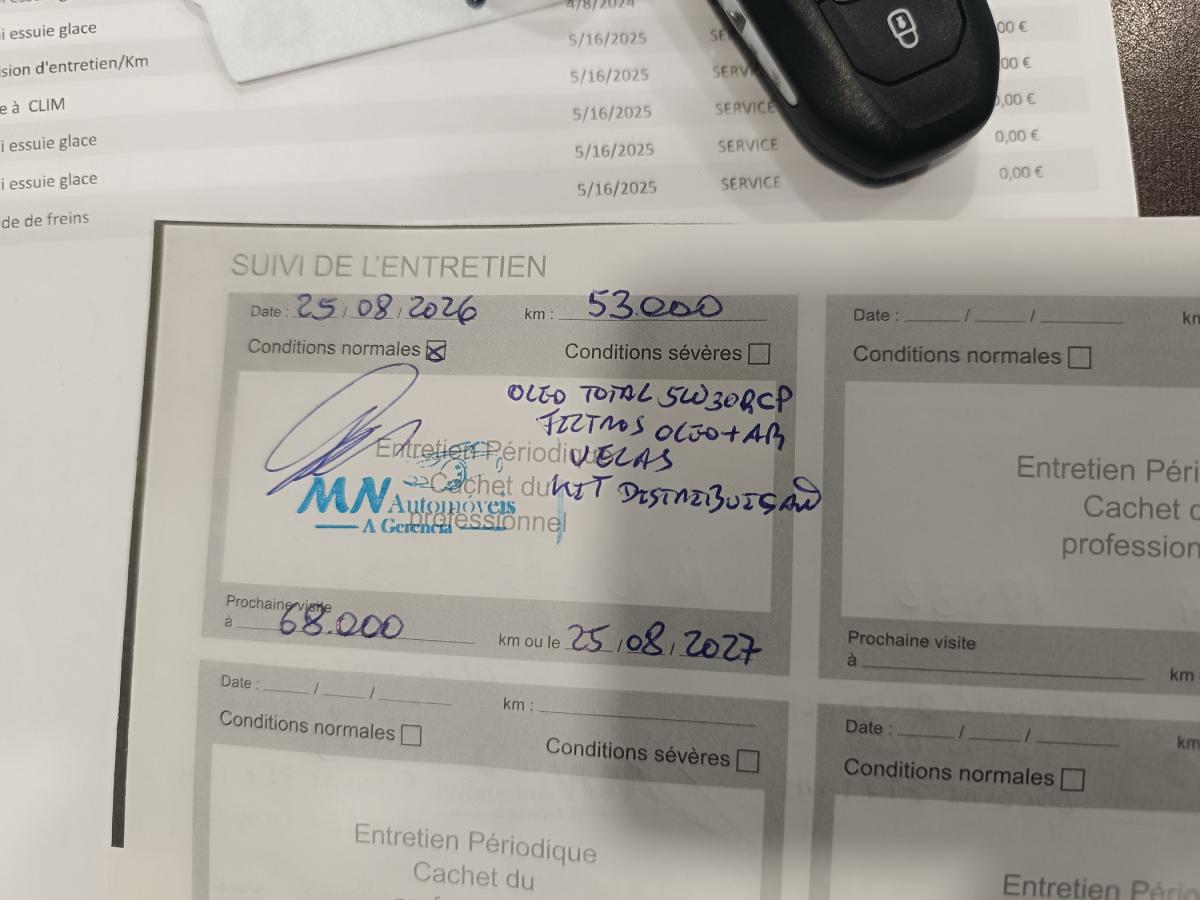 i essuie glace
sion d'entretien/Km
e à CLIM
i essuie glace
i essuie glace
de de freins
4/8/2024
5/16/2025
5/16/2025
5/16/2025
5/16/2025
5/16/2025
SERVI
SERVICE
SERVICE
SERVICE
00 €
00 €
0,00 €
0,00 €
0,00 €
SUIVI DE L'ENTRETIEN
Date : 25/08/2026 km : 53.000
Conditions normales Conditions sévères
OLEO TOTAL 5W30RCP
FILTROS OLEO+AR
VELAS
KIT DISTRIBUIÇAO
Entretien Périodique
Cachet du
professionnel
MN Automóveis
A Gerência
Prochaine visite
à 68.000 km ou le 25/08/2027
Date : / / km
Conditions normales
Entretien Péri
Cachet d
profession
Prochaine visite
à km
Date : / / km :
Conditions normales Conditions sévères
Entretien Périodique
Cachet du
Date : / / km
Conditions normales
Entretien Pério